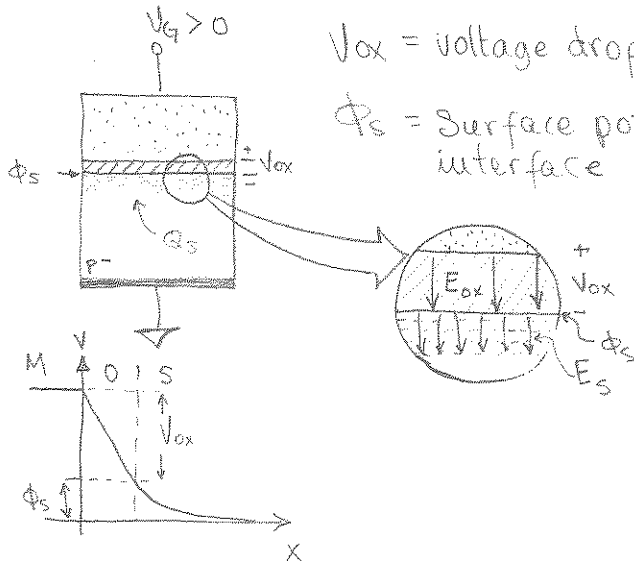 V_G > 0
V_ox = voltage drop
Φ_s = Surface
interface
+
V_ox
Φ_s
Q_s
P⁻
E_ox
+
V_ox
-
Φ_s
E_s
V
M O S
V_ox
Φ_s
X